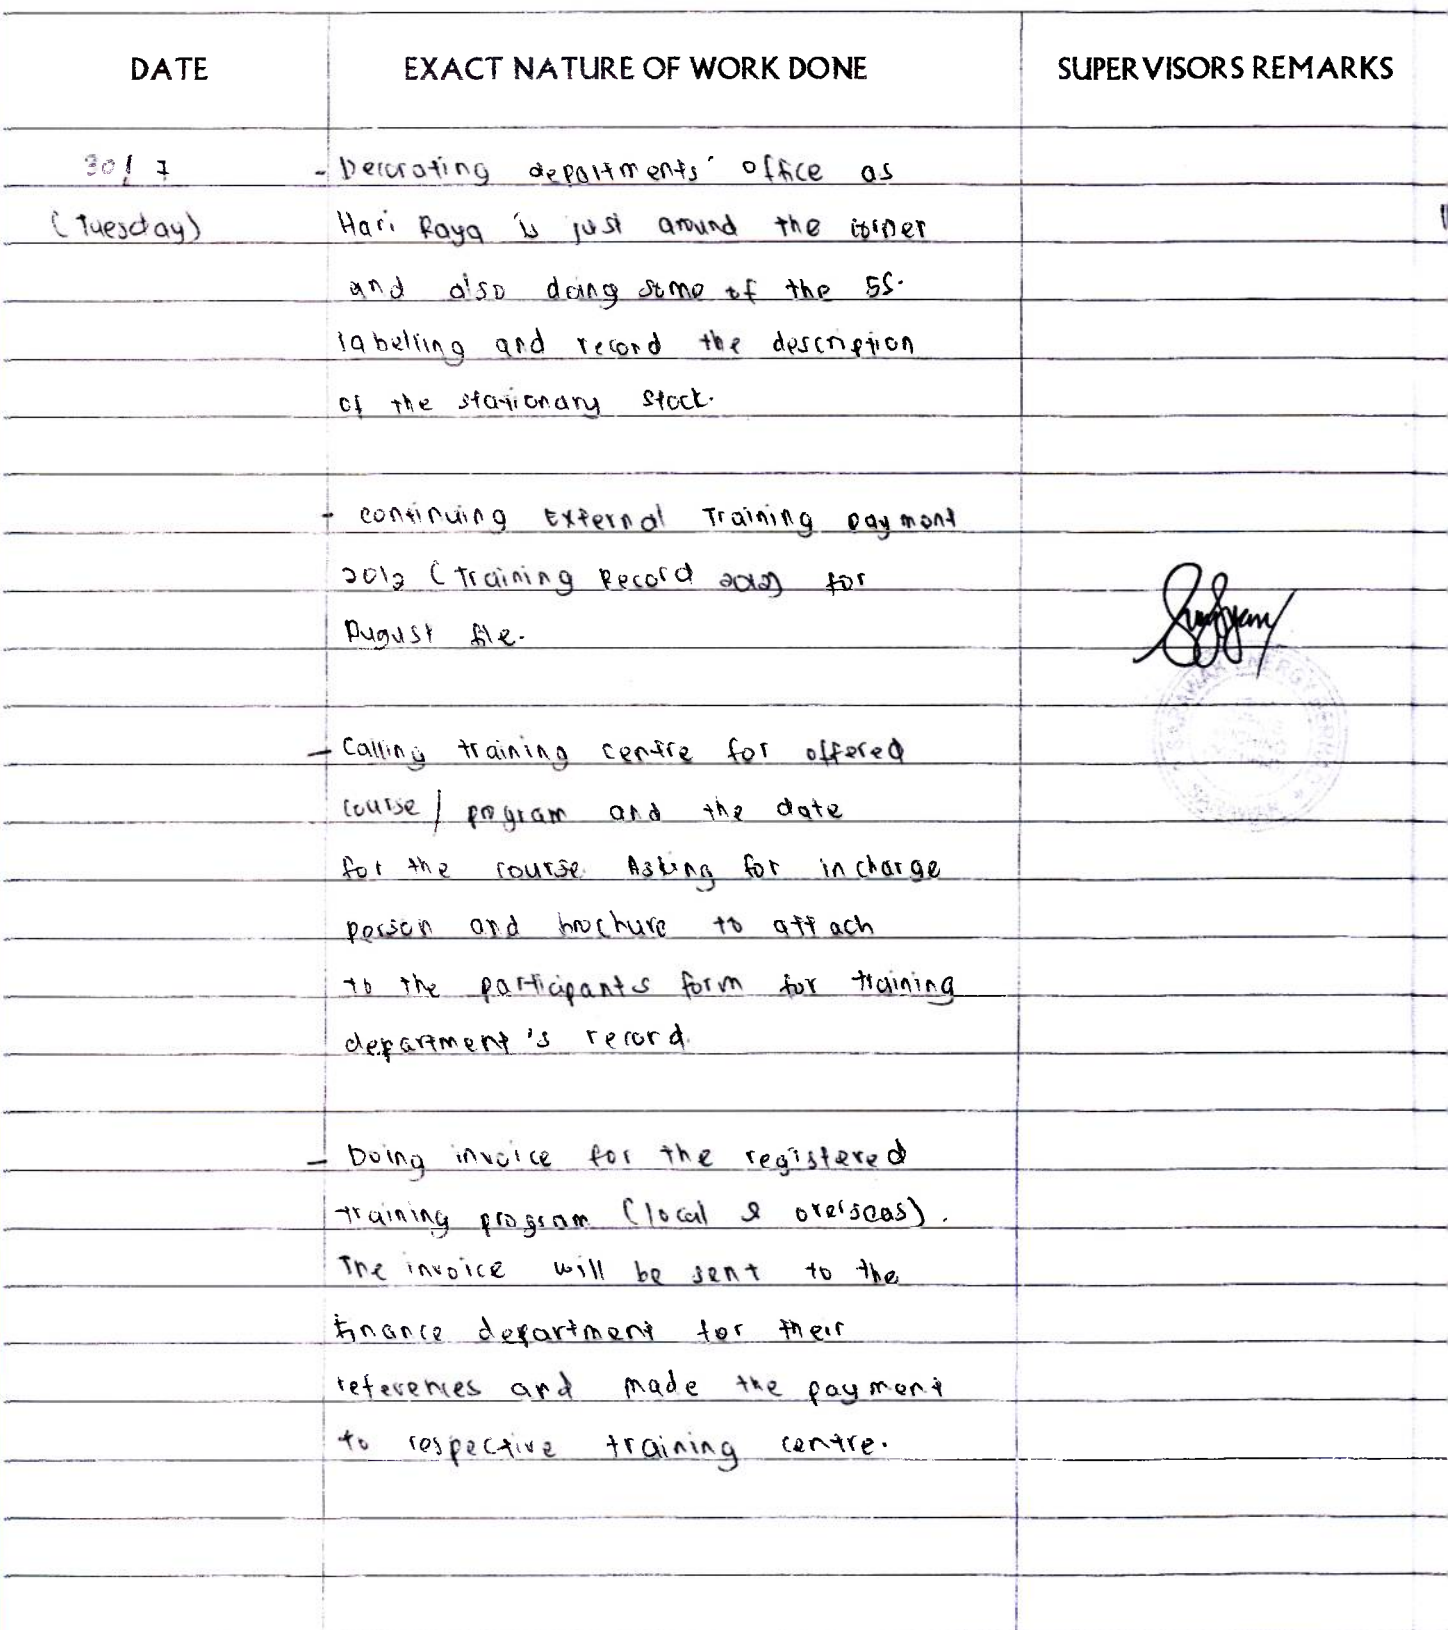 DATE EXACT NATURE OF WORK DONE SUPERVISORS REMARKS
30/7 - Decorating departments' office as
(Tuesday) Hari Raya is just around the corner
and also doing some of the 5S.
labelling and record the description
of the stationary stock.
- continuing External Training payment
2013 (Training Record 2013) for
August file.
- Calling training centre for offered
course/program and the date
for the course. Asking for incharge
person and brochure to attach
to the participants form for training
department's record.
- Doing invoice for the registered
training program (local & overseas).
The invoice will be sent to the
finance department for their
references and made the payment
to respective training centre.
SARAWAK ENERGY BERHAD
SARAWAK